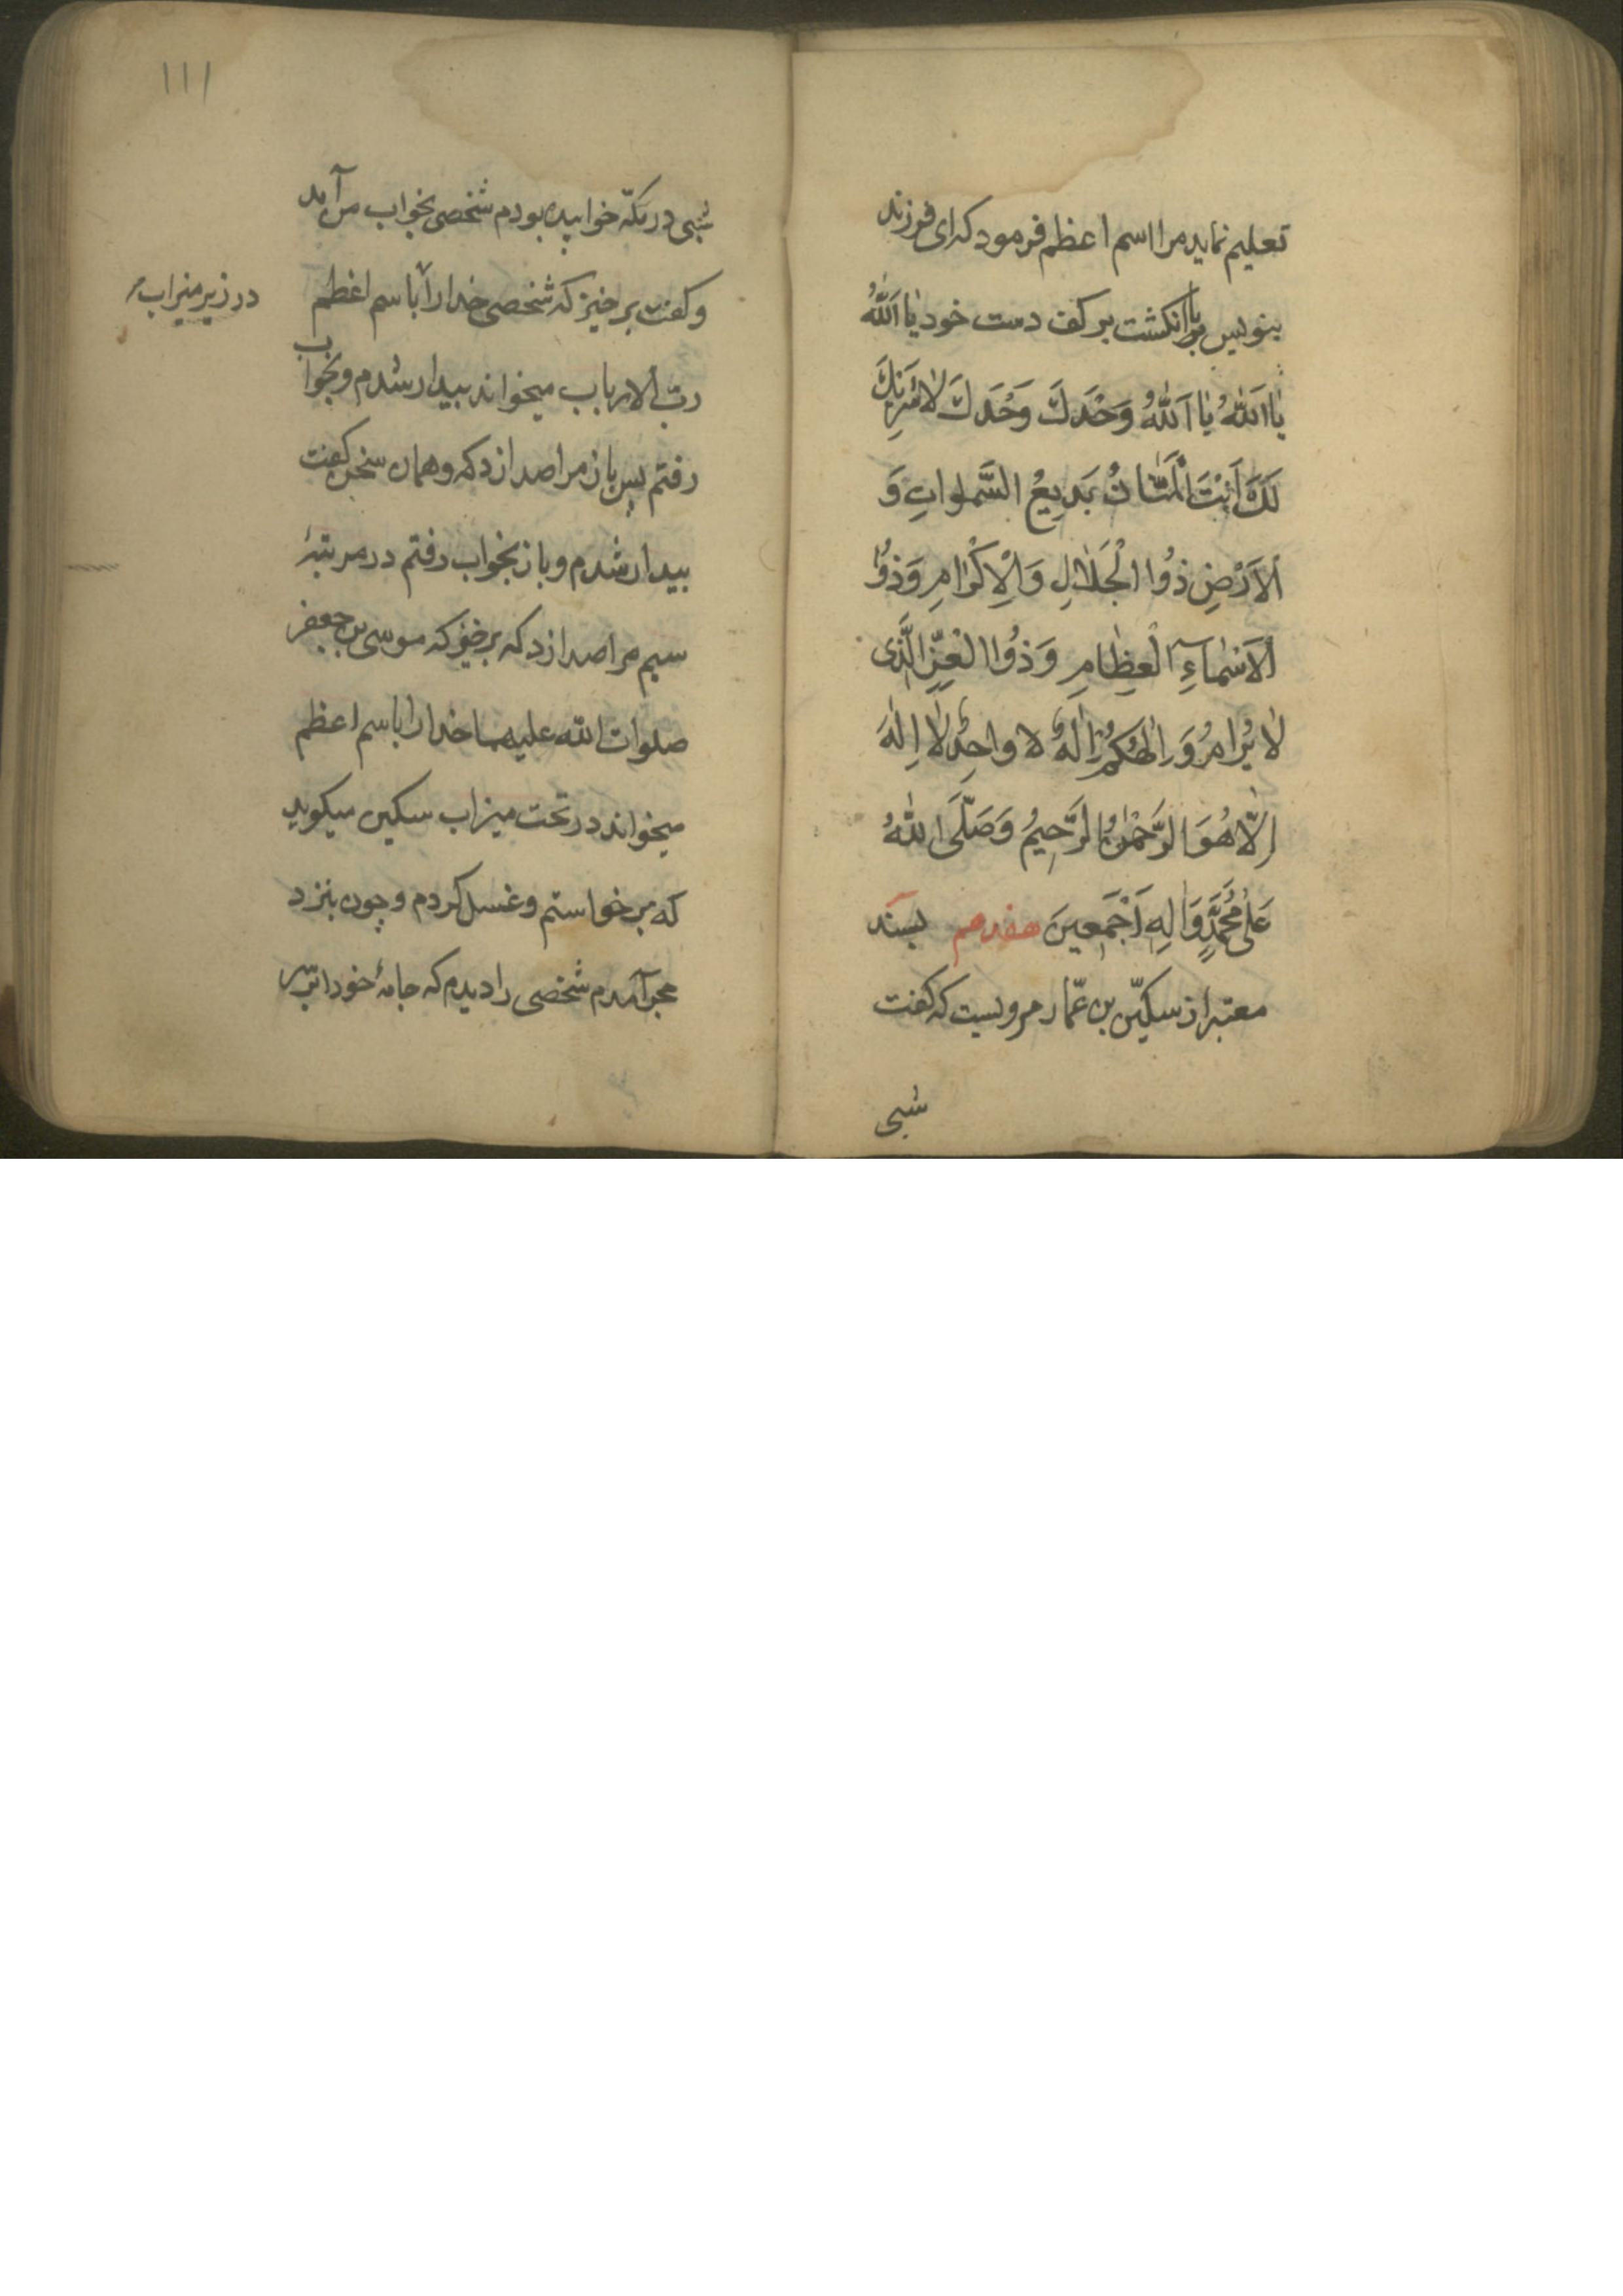 تعلیم نماید مرا اسم اعظم فرمود که ای فرزند
بنویس با انگشت بر کف دست خود یٰا اَللّٰهُ
یٰا اَللّٰهُ یٰا اَللّٰهُ وَحْدَكَ وَحْدَكَ لاٰ شَرٖیكَ
لَكَ اَنْتَ الْمَنّٰانُ بَدٖیعُ السَّمٰواتِ وَ
الْاَرْضِ ذُوا الْجَلاٰلِ وَالْاِكْرٰامِ وَ ذُوا
الْاَسْمٰاءِ الْعِظٰامِ وَ ذُوا الْعِزِّ الَّذٖی
لاٰ یُرٰامُ وَ اِلٰهُكُمْ اِلٰهٌ واحِدٌ لاٰ اِلٰهَ
اِلّٰا هُوَ الرَّحْمٰنُ الرَّحٖیمُ وَ صَلَّی اللّٰهُ
عَلٰی مُحَمَّدٍ وَ اٰلِهٖ اَجْمَعٖینَ هفدهم بسند
معتبر از سکیّن بن عمّار مرویست که گفت
شبی
۱۱۱
شبی در مکّه خوابیده بودم شخصی بخواب من آمد
و گفت برخیز که شخصی خدا را باسم اعظم
در زیر میزاب
ربّ الارباب میخواند بیدار شدم و بخواب
رفتم پس باز مرا صدا زد که و همان سخن گفت
بیدار شدم و باز بخواب رفتم در مرتبهٔ
سیم مرا صدا زد که برخیز که موسی بن جعفر
صلوات الله علیهما خدا را باسم اعظم
میخواند در تحت میزاب سکین میگوید
که برخواستم و غسل کردم و چون بنزد
حجر آمدم شخصی را دیدم که جامهٔ خود را بر سر